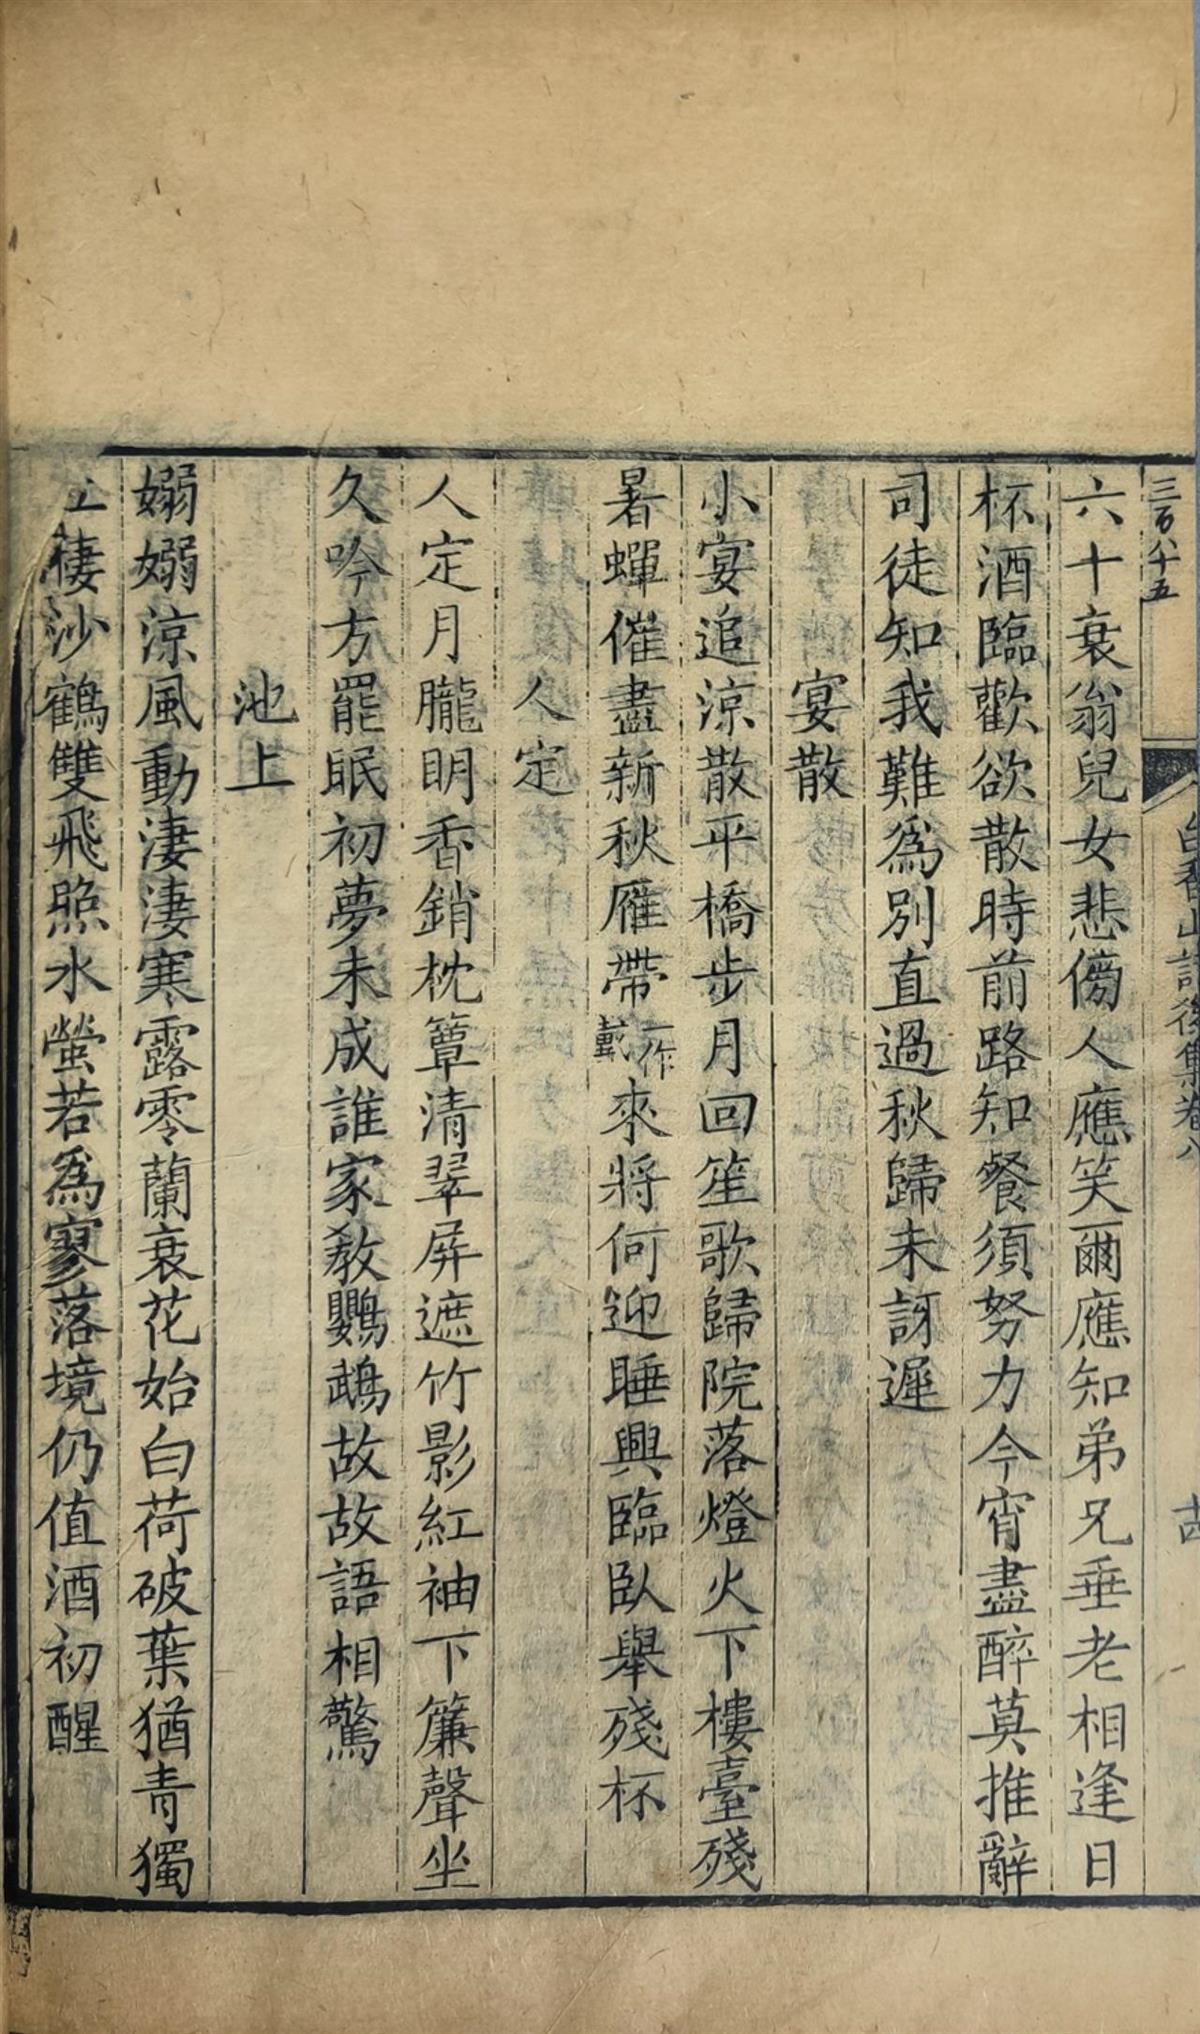 三百八十五
白香山詩後集卷八
六十衰翁兒女悲傍人應笑爾應知弟兄垂老相逢日
杯酒臨歡欲散時前路知餐須努力今宵盡醉莫推辭
司徒知我難爲別直過秋歸未訝遲
宴散
小宴追涼散平橋步月回笙歌歸院落燈火下樓臺殘
暑蟬催盡新秋雁帶一作戴來將何迎睡興臨臥舉殘杯
人定
人定月朧明香銷枕簟清翠屏遮竹影紅袖下簾聲坐
久吟方罷眠初夢未成誰家教鸚鵡故故語相驚
池上
嫋嫋涼風動淒淒寒露零蘭衰花始白荷破葉猶青獨
立棲沙鶴雙飛照水螢若爲寥落境仍值酒初醒